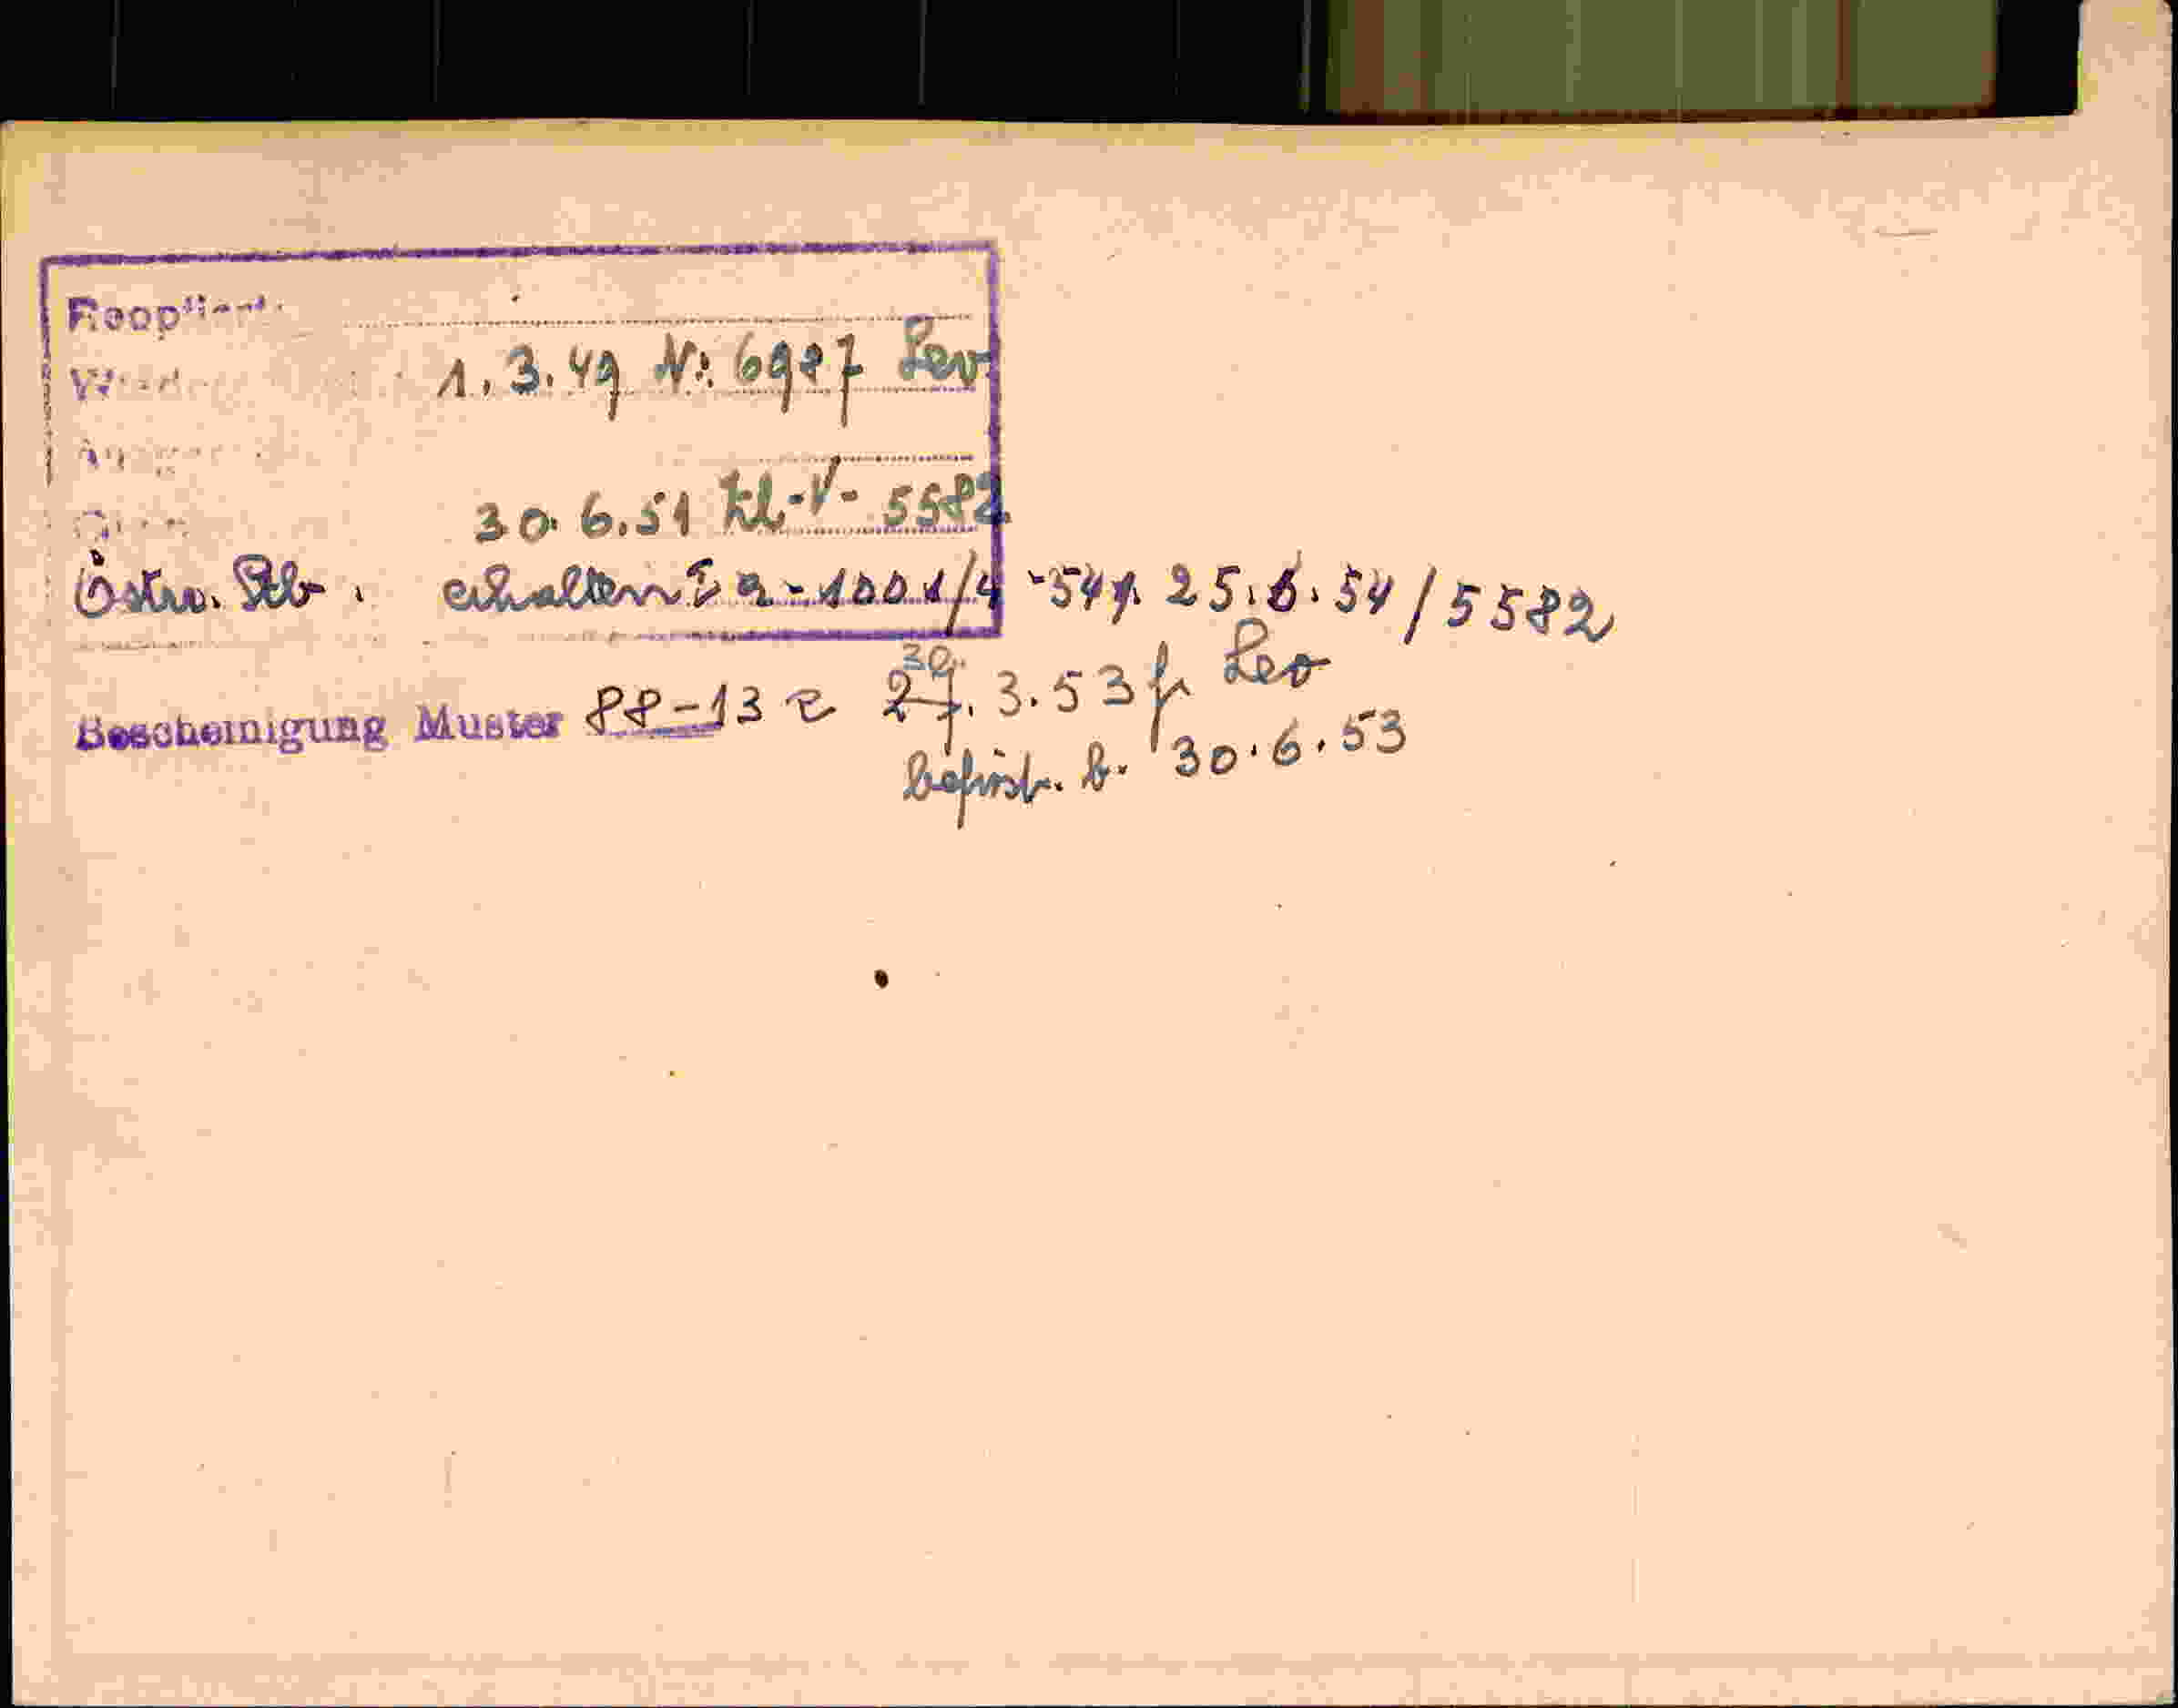 Reoptiert:
1.3.49 N: 6987 Leo
30.6.51 Zl-V- 5582
Östro. Stb. erhalten I a-1001/4-54 v. 25.6.54/5582
30.
Bescheinigung Muster 88-13 e 27.3.53 fr Leo
befrist. b. 30.6.53